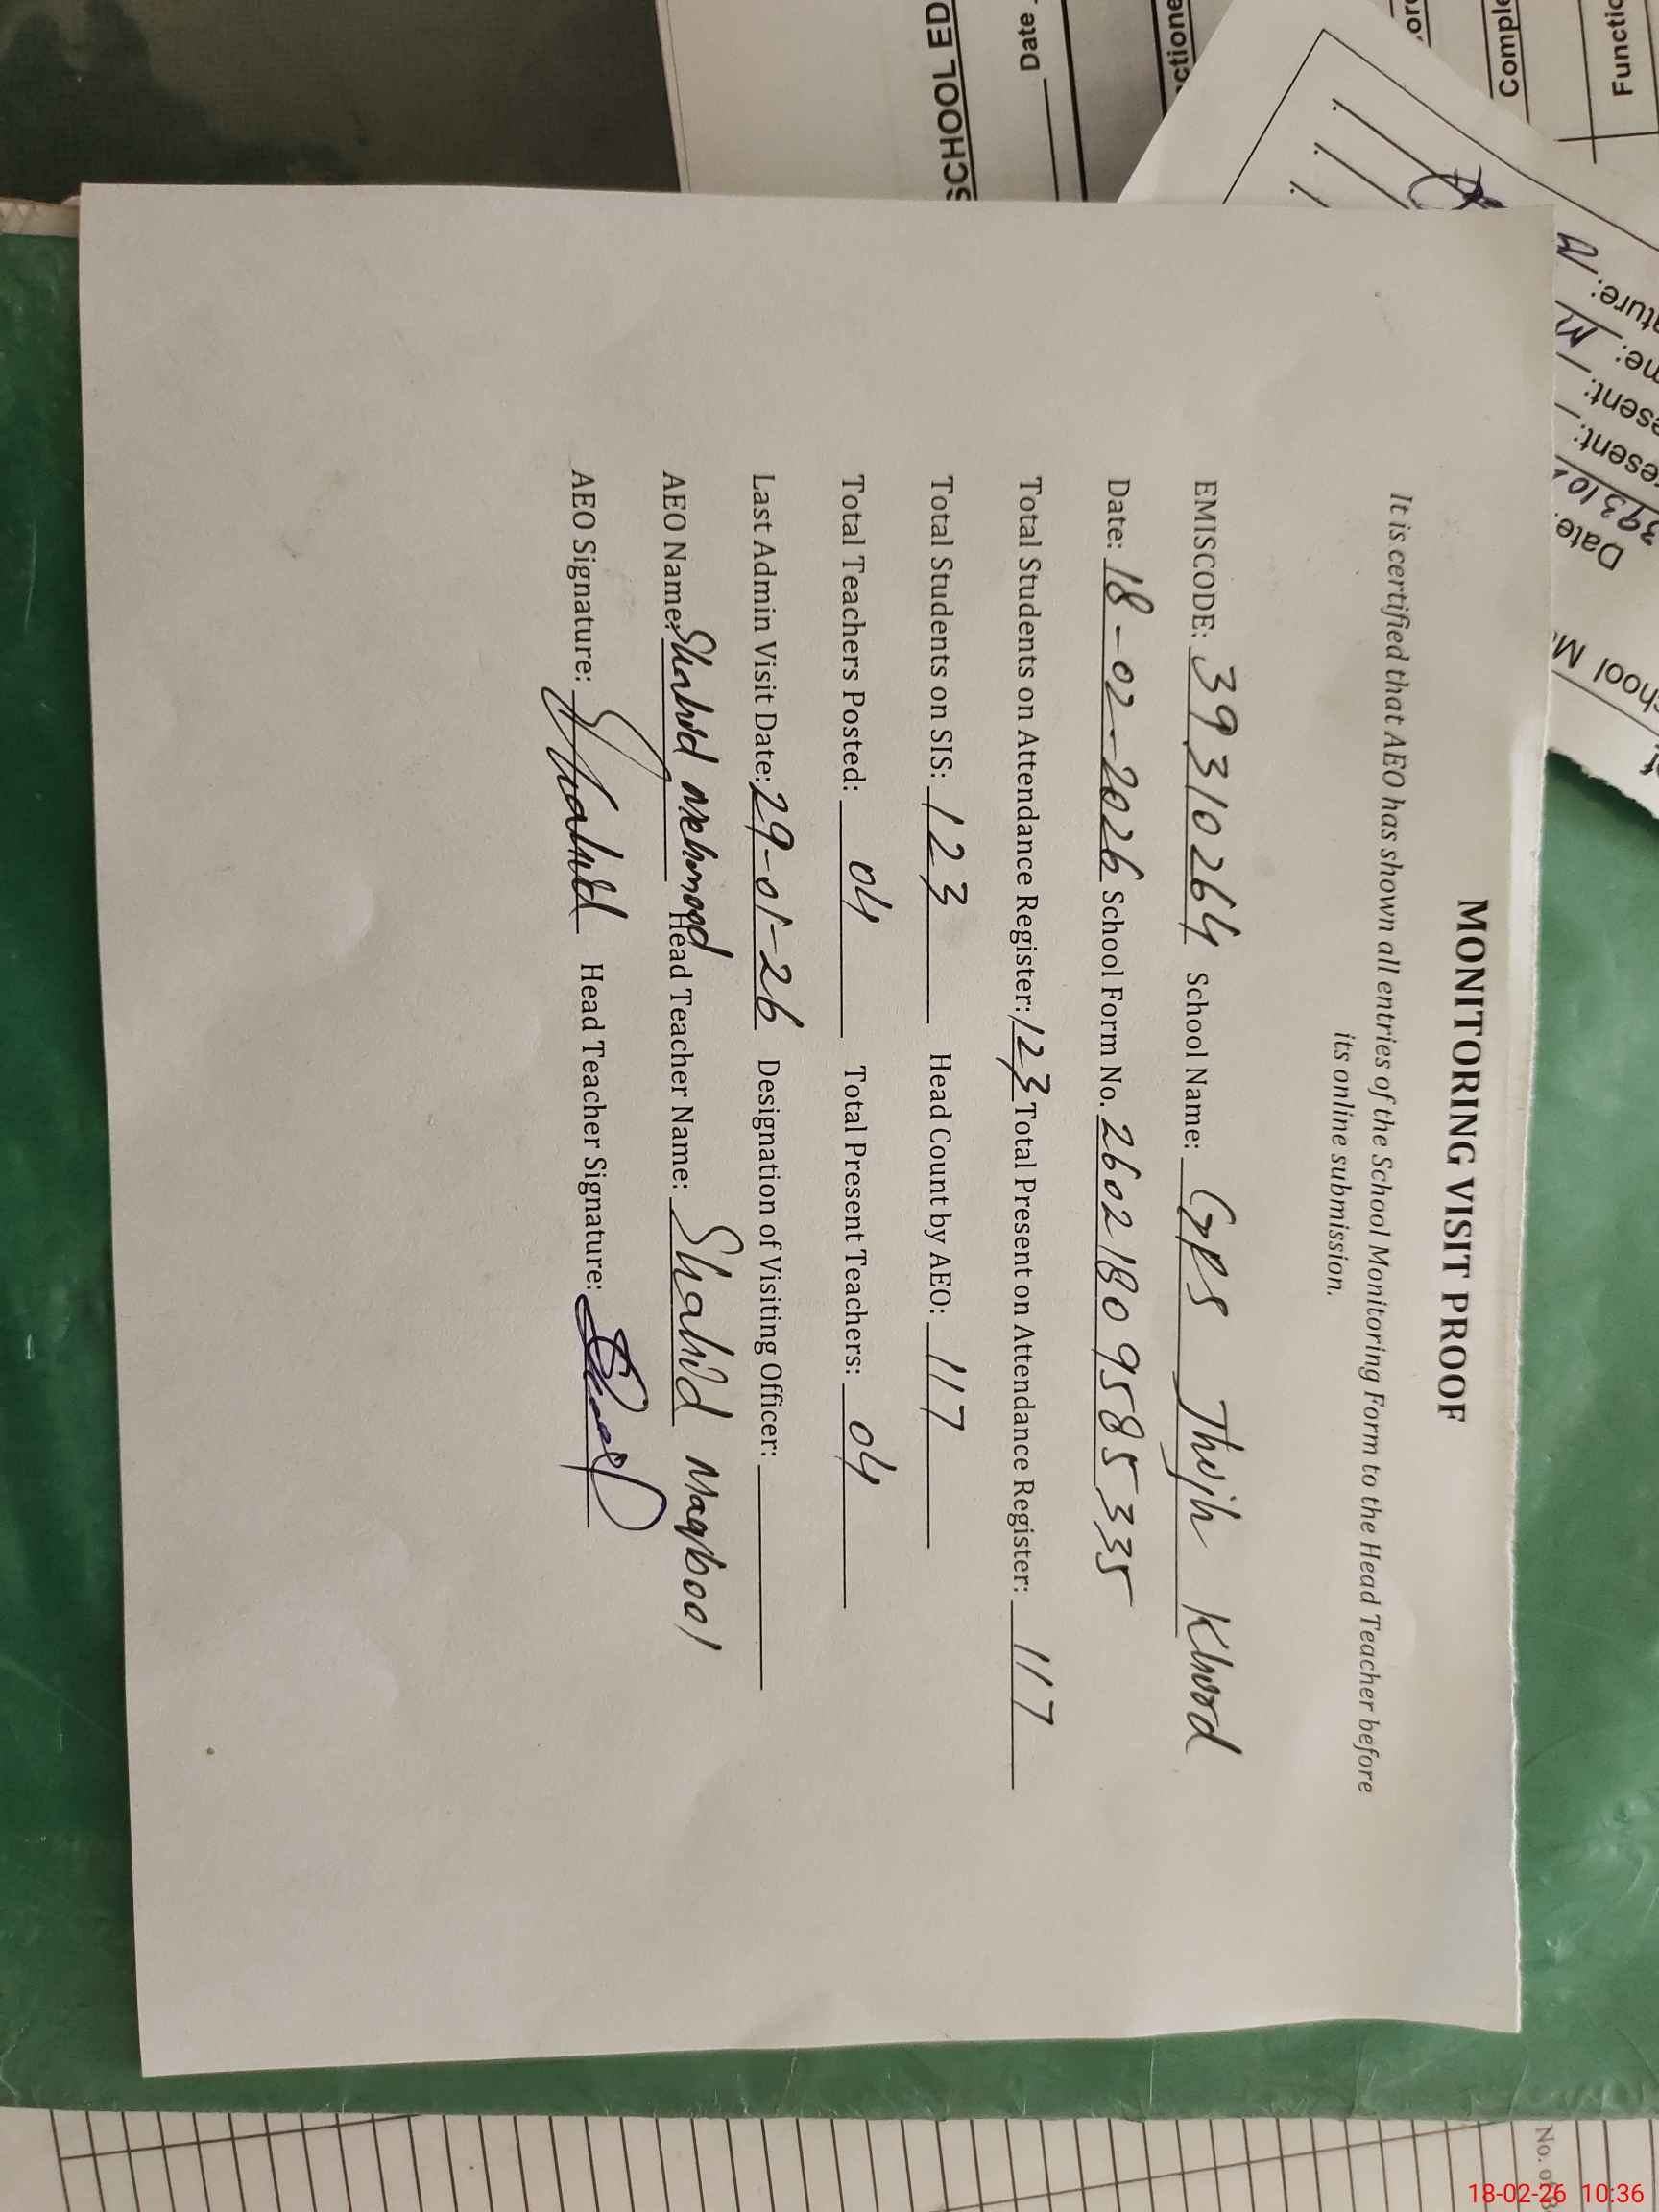 MONITORING VISIT PROOF
It is certified that AEO has shown all entries of the School Monitoring Form to the Head Teacher before
its online submission.
EMISCODE: 39310264 School Name: GPS Thojh Khord
Date: 18-02-2026 School Form No. 2602180958535
Total Students on Attendance Register: 123 Total Present on Attendance Register: 117
Total Students on SIS: 123 Head Count by AEO: 117
Total Teachers Posted: 04 Total Present Teachers: 04
Last Admin Visit Date: 29-01-26 Designation of Visiting Officer:
AEO Name: Shahid Mehmood Head Teacher Name: Shahid Maqbool
AEO Signature: Shahid Head Teacher Signature:
SCHOOL ED
Date
Functio
Comple
Date
No. of
18-02-26 10:36